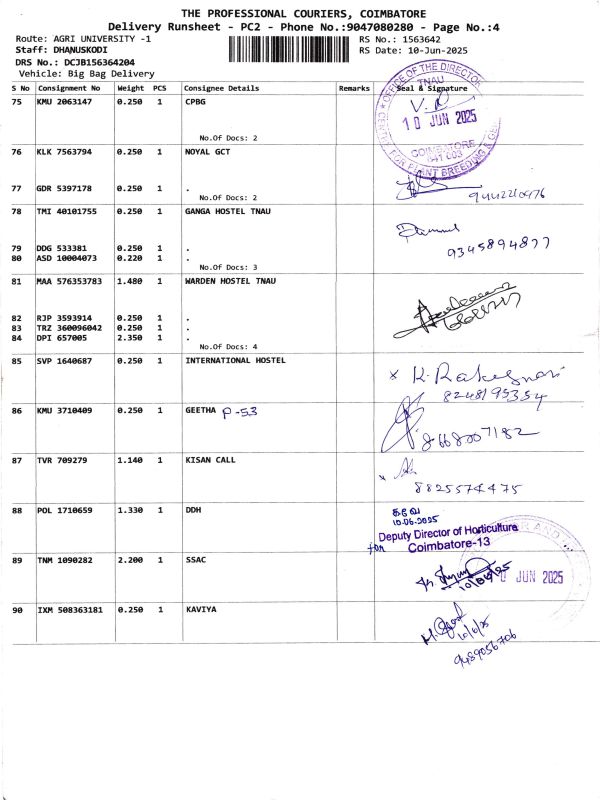 THE PROFESSIONAL COURIERS, COIMBATORE
Delivery Runsheet - PC2 - Phone No.:9047080280 - Page No.:4
Route: AGRI UNIVERSITY -1 RS No.: 1563642
Staff: DHANUSKODI RS Date: 10-Jun-2025
DRS No.: DCJB156364204
Vehicle: Big Bag Delivery
S No Consignment No Weight PCS Consignee Details Remarks Seal & Signature
75 KMU 2063147 0.250 1 CPBG
OFFICE OF THE DIRECTOR
TNAU
10 JUN 2025
COIMBATORE
641 003
FOR PLANT BREEDING & GEN
No.Of Docs: 2
76 KLK 7563794 0.250 1 NOYAL GCT
77 GDR 5397178 0.250 1 .
No.Of Docs: 2
78 TMI 40101755 0.250 1 GANGA HOSTEL TNAU
9345894877
79 DDG 533381 0.250 1 .
80 ASD 10004073 0.220 1 .
No.Of Docs: 3
81 MAA 576353783 1.480 1 WARDEN HOSTEL TNAU
82 RJP 3593914 0.250 1 .
83 TRZ 360096042 0.250 1 .
84 DPI 657005 2.350 1 .
No.Of Docs: 4
85 SVP 1640687 0.250 1 INTERNATIONAL HOSTEL
8248195354
86 KMU 3710409 0.250 1 GEETHA P-53
87 TVR 709279 1.140 1 KISAN CALL
8825574475
88 POL 1710659 1.330 1 DDH
10-06-2025
Deputy Director of Horticulture
for Coimbatore-13
89 TNM 1090282 2.200 1 SSAC
10/06/25
JUN 2025
90 IXM 508363181 0.250 1 KAVIYA
10/6/25
9489056706